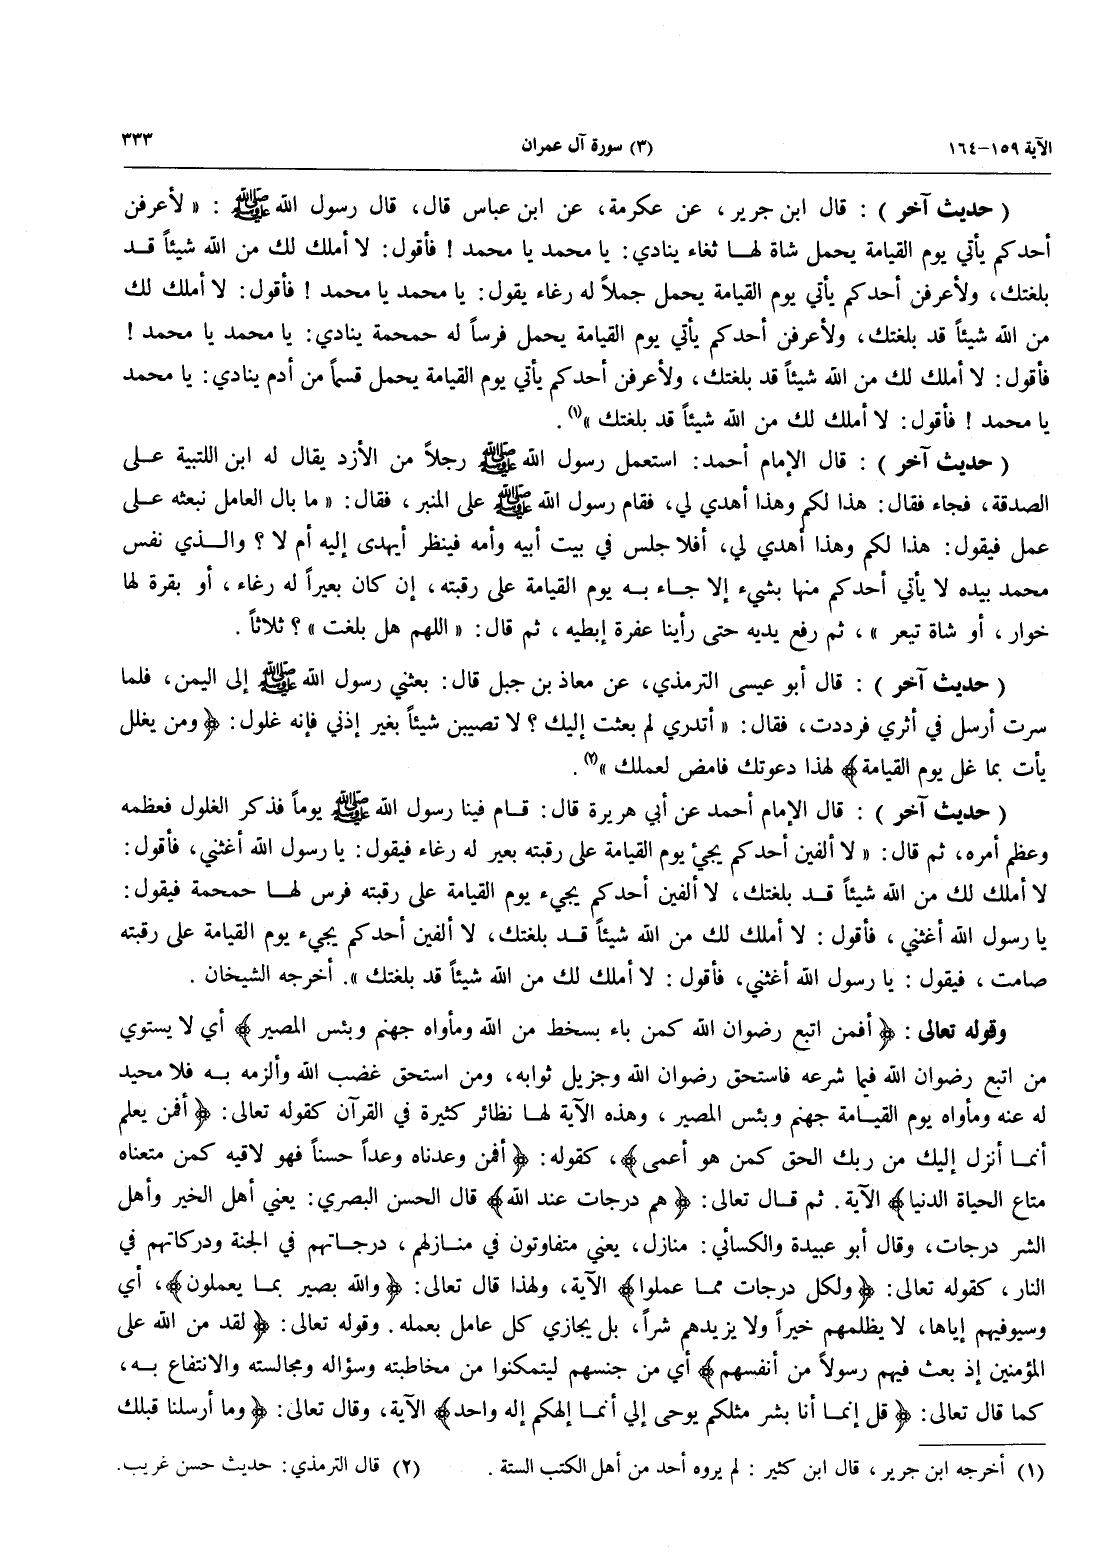 الآية ١٥٩-١٦٤
(٣) سورة آل عمران
٣٣٣
( حديث آخر ) : قال ابن جرير ، عن عكرمة، عن ابن عباس قال، قال رسول الله ﷺ : « لأعرفن
أحدكم يأتي يوم القيامة يحمل شاة لها ثغاء ينادي: يا محمد يا محمد ! فأقول: لا أملك لك من الله شيئاً قد
بلغتك، ولأعرفن أحدكم يأتي يوم القيامة يحمل جملاً له رغاء يقول: يا محمد يا محمد ! فأقول: لا أملك لك
من الله شيئاً قد بلغتك، ولأعرفن أحدكم يأتي يوم القيامة يحمل فرساً له حمحمة ينادي: يا محمد يا محمد !
فأقول: لا أملك لك من الله شيئاً قد بلغتك، ولأعرفن أحدكم يأتي يوم القيامة يحمل قسماً من أدم ينادي: يا محمد
يا محمد ! فأقول: لا أملك لك من الله شيئاً قد بلغتك »(١) .
( حديث آخر ) : قال الإمام أحمد: استعمل رسول الله ﷺ رجلاً من الأزد يقال له ابن اللتبية على
الصدقة، فجاء فقال: هذا لكم وهذا أهدي لي، فقام رسول الله ﷺ على المنبر ، فقال: « ما بال العامل نبعثه على
عمل فيقول: هذا لكم وهذا أهدي لي، أفلا جلس في بيت أبيه وأمه فينظر أيهدى إليه أم لا ؟ والذي نفس
محمد بيده لا يأتي أحدكم منها بشيء إلا جاء به يوم القيامة على رقبته، إن كان بعيراً له رغاء ، أو بقرة لها
خوار ، أو شاة تيعر »، ثم رفع يديه حتى رأينا عفرة إبطيه ، ثم قال: « اللهم هل بلغت » ؟ ثلاثاً .
( حديث آخر ) : قال أبو عيسى الترمذي، عن معاذ بن جبل قال: بعثني رسول الله ﷺ إلى اليمن، فلما
سرت أرسل في أثري فرددت، فقال: « أتدري لم بعثت إليك ؟ لا تصيبن شيئاً بغير إذني فإنه غلول: ﴿ ومن يغلل
يأت بما غل يوم القيامة﴾ لهذا دعوتك فامض لعملك »(٢) .
( حديث آخر ) : قال الإمام أحمد عن أبي هريرة قال: قام فينا رسول الله ﷺ يوماً فذكر الغلول فعظمه
وعظم أمره، ثم قال: « لا ألفين أحدكم يجيء يوم القيامة على رقبته بعير له رغاء فيقول: يا رسول الله أغثني، فأقول:
لا أملك لك من الله شيئاً قد بلغتك، لا ألفين أحدكم يجيء يوم القيامة على رقبته فرس لها حمحمة فيقول:
يا رسول الله أغثني ، فأقول : لا أملك لك من الله شيئاً قد بلغتك، لا ألفين أحدكم يجيء يوم القيامة على رقبته
صامت ، فيقول : يا رسول الله أغثني، فأقول : لا أملك لك من الله شيئاً قد بلغتك ». أخرجه الشيخان .
وقوله تعالى : ﴿ أفمن اتبع رضوان الله كمن باء بسخط من الله ومأواه جهنم وبئس المصير ﴾ أي لا يستوي
من اتبع رضوان الله فيما شرعه فاستحق رضوان الله وجزيل ثوابه، ومن استحق غضب الله وألزمه به فلا محيد
له عنه ومأواه يوم القيامة جهنم وبئس المصير ، وهذه الآية لها نظائر كثيرة في القرآن كقوله تعالى: ﴿ أفمن يعلم
أنما أنزل إليك من ربك الحق كمن هو أعمى﴾، كقوله: ﴿ أفمن وعدناه وعداً حسناً فهو لاقيه كمن متعناه
متاع الحياة الدنيا﴾ الآية. ثم قال تعالى: ﴿ هم درجات عند الله﴾ قال الحسن البصري: يعني أهل الخير وأهل
الشر درجات، وقال أبو عبيدة والكسائي: منازل، يعني متفاوتون في منازلهم ، درجاتهم في الجنة ودركاتهم في
النار ، كقوله تعالى: ﴿ولكل درجات مما عملوا﴾ الآية، ولهذا قال تعالى: ﴿والله بصير بما يعملون﴾، أي
وسيوفيهم إياها، لا يظلمهم خيراً ولا يزيدهم شراً، بل يجازي كل عامل بعمله. وقوله تعالى: ﴿ لقد من الله على
المؤمنين إذ بعث فيهم رسولاً من أنفسهم﴾ أي من جنسهم ليتمكنوا من مخاطبته وسؤاله ومجالسته والانتفاع به،
كما قال تعالى: ﴿ قل إنما أنا بشر مثلكم يوحى إلي أنما إلهكم إله واحد﴾ الآية، وقال تعالى: ﴿ وما أرسلنا قبلك
(١) أخرجه ابن جرير ، قال ابن كثير : لم يروه أحد من أهل الكتب الستة . (٢) قال الترمذي: حديث حسن غريب.